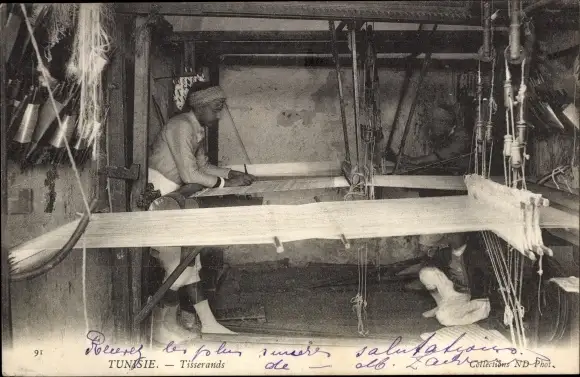 Recevez les plus sincères salutations
91 TUNISIE. — Tisserands de — Collections ND Phot.